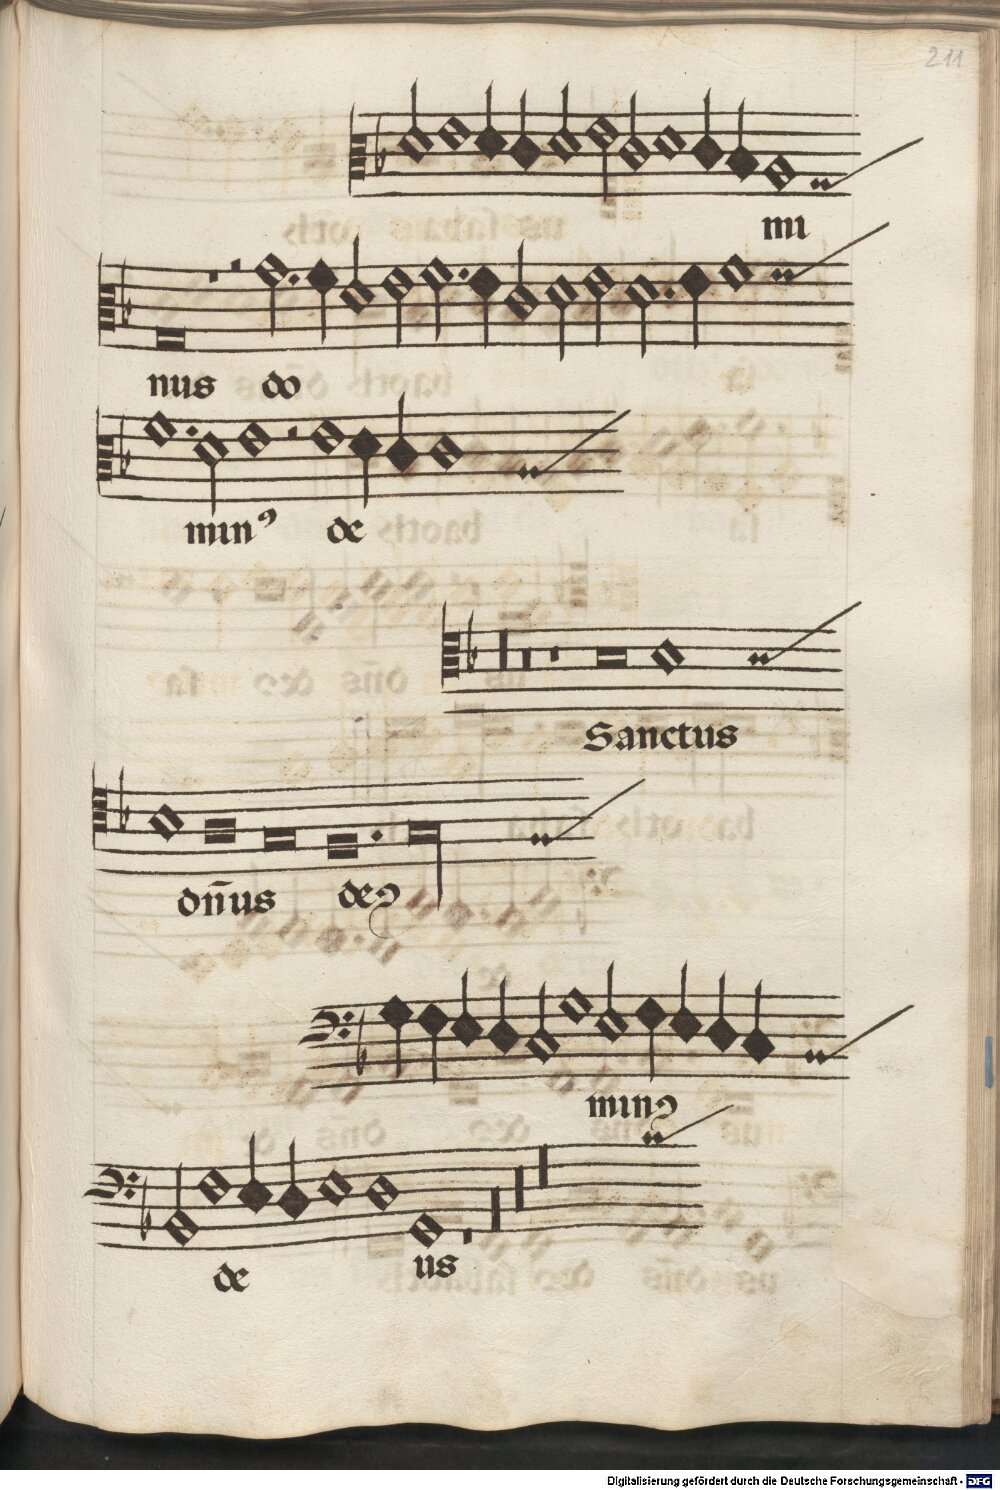 211
mi
nus do
minꝰ de
Sanctus
dn̄us deꝰ
minꝰ
de us
Digitalisierung gefördert durch die Deutsche Forschungsgemeinschaft - DFG